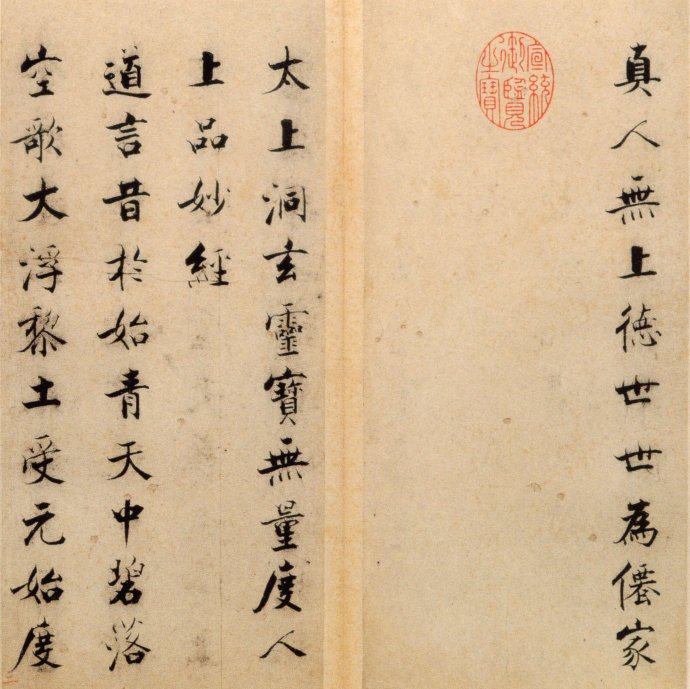 真人無上德世世為僊家
宣統御覽之寶
太上洞玄靈寶無量度人
上品妙經
道言昔於始青天中碧落
空歌大浮黎土受元始度
三